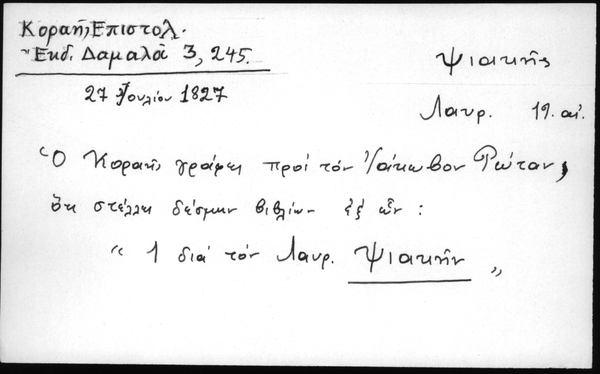 Κοραῆ, Ἐπιστολ.
Ἔκδ. Δαμαλᾶ 3, 245.
Ψιακῆς
27 Ἰουλίου 1827
Λαυρ. 19. αἰ.
Ὁ Κοραῆς γράφει πρὸς τὸν Ἰάκωβον Ρώταν,
ὅτι στέλλει δέσμην βιβλίων ἐξ ὧν :
“ 1 διὰ τὸν Λαυρ. Ψιακῆν „